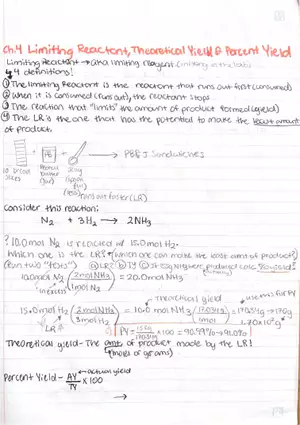 Ch.4 Limiting Reactant, Theoretical Yield & Percent Yield
Limiting Reactant → aka limiting reagent (limiting in the lab)
↳ 4 definitions!
① The limiting reactant is the reactant that runs out first (consumed)
② When it is consumed (runs out), the reaction stops
③ The reaction that "limits" the amount of product formed (yield)
④ The LR is the one that has the potential to make the least amount
of product.
10 bread slices + PB Peanut butter (jar) + Jelly → PB & J Sandwiches
runs out faster (LR)
Consider this reaction:
N₂ + 3H₂ → 2NH₃
? 10.0 mol N₂ is reacted w/ 15.0 mol H₂.
Which one is the LR? (which one can make the least amount of product?)
(Run two "TCHs") ⓐ LR? ⓑ TY ⓒ If 155g NH₃ were produced, calc. % yield?
10.0 mol N₂ (2 mol NH₃ / 1 mol N₂) = 20.0 mol NH₃
in excess
theoretical yield
use this for PY
15.0 mol H₂ (2 mol NH₃ / 3 mol H₂) = 10.0 mol NH₃ (17.034g / 1 mol) = 170.34g → 170g
1.70×10²g
LR
PY = 155g / 170.34g × 100 = 90.99% → 91.0%
Theoretical yield - The amt. of product made by the LR!
(moles or grams)
Percent Yield - AY / TY × 100
actual yield
→